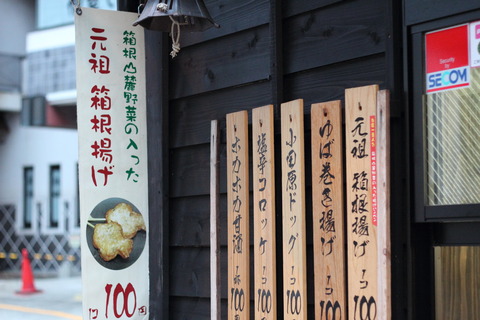 箱根山麓野菜の入った
元祖 箱根揚げ
1コ 100円
元祖 箱根揚げ 1コ 100
ゆば巻き揚げ 1コ 100
小田原ドッグ 1コ 100
塩辛コロッケ 1コ 100
ホカホカ甘酒 一杯 100円
Security by
SECOM